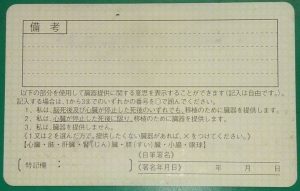 備考
以下の部分を使用して臓器提供に関する意思を表示することができます(記入は自由です。)。
記入する場合は、1から3までのいずれかの番号を○で囲んでください。
1. 私は、脳死後及び心臓が停止した死後のいずれでも、移植のために臓器を提供します。
2. 私は、心臓が停止した死後に限り、移植のために臓器を提供します。
3. 私は、臓器を提供しません。
《1又は2を選んだ方で、提供したくない臓器があれば、×をつけてください。》
【心臓・肺・肝臓・腎(じん)臓・膵(すい)臓・小腸・眼球】
〔特記欄: 〕
《自筆署名》
《署名年月日》 年 月 日